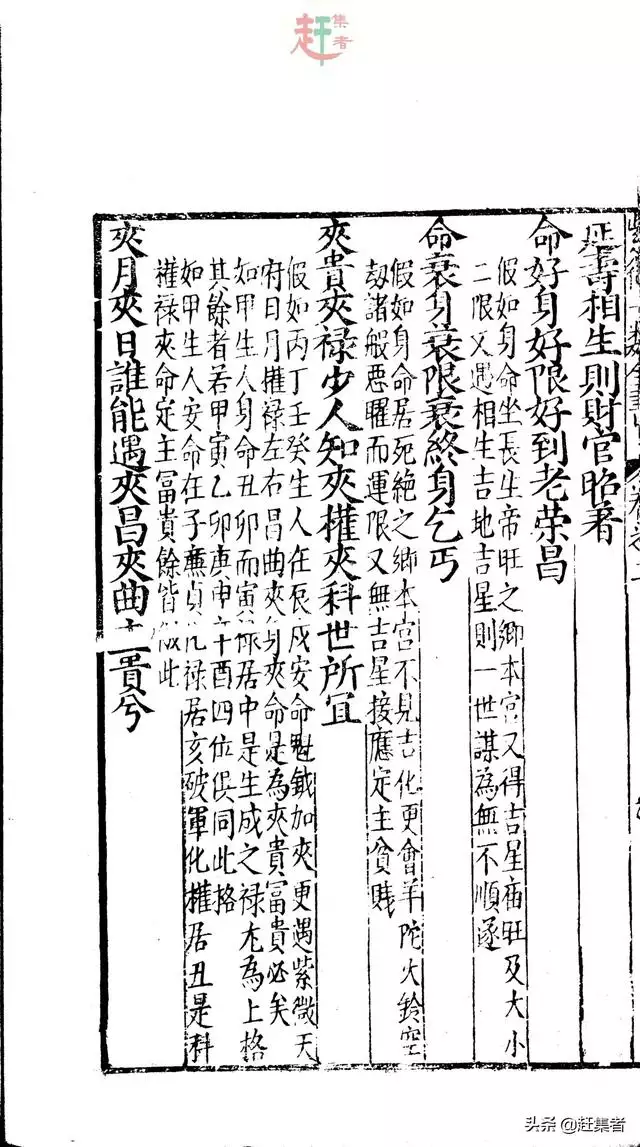 赶集者
星壽相生則財官昭著
命好身好限好到老荣昌
假如身命坐長生帝旺之鄉本宮又得吉星庙旺及大小
二限又遇相生吉地吉星則一世謀為無不順遂
命衰身衰限衰終身乞丐
假如身命居死絶之鄉本宮不見吉化更會羊陀火鈴空
刼諸般惡曜而運限又無吉星接應定主貧賤
夾貴夾禄少人知夾權夾科世所宜
假如丙丁壬癸生人在辰戌安命魁鉞加夾更遇紫微天
府日月權禄左右昌曲夾身夾命是為夾貴富貴必矣
如甲生人身命丑卯而寅禄居中是生成之禄尤為上格
其餘者若甲寅乙卯庚申辛酉四位俱同此格
如甲生人安命在子廉貞化禄居亥破軍化權居丑是科
權禄夾命定主冨貴餘皆倣此
夾月夾日誰能遇夾昌夾曲主貴兮
头条 @赶集者